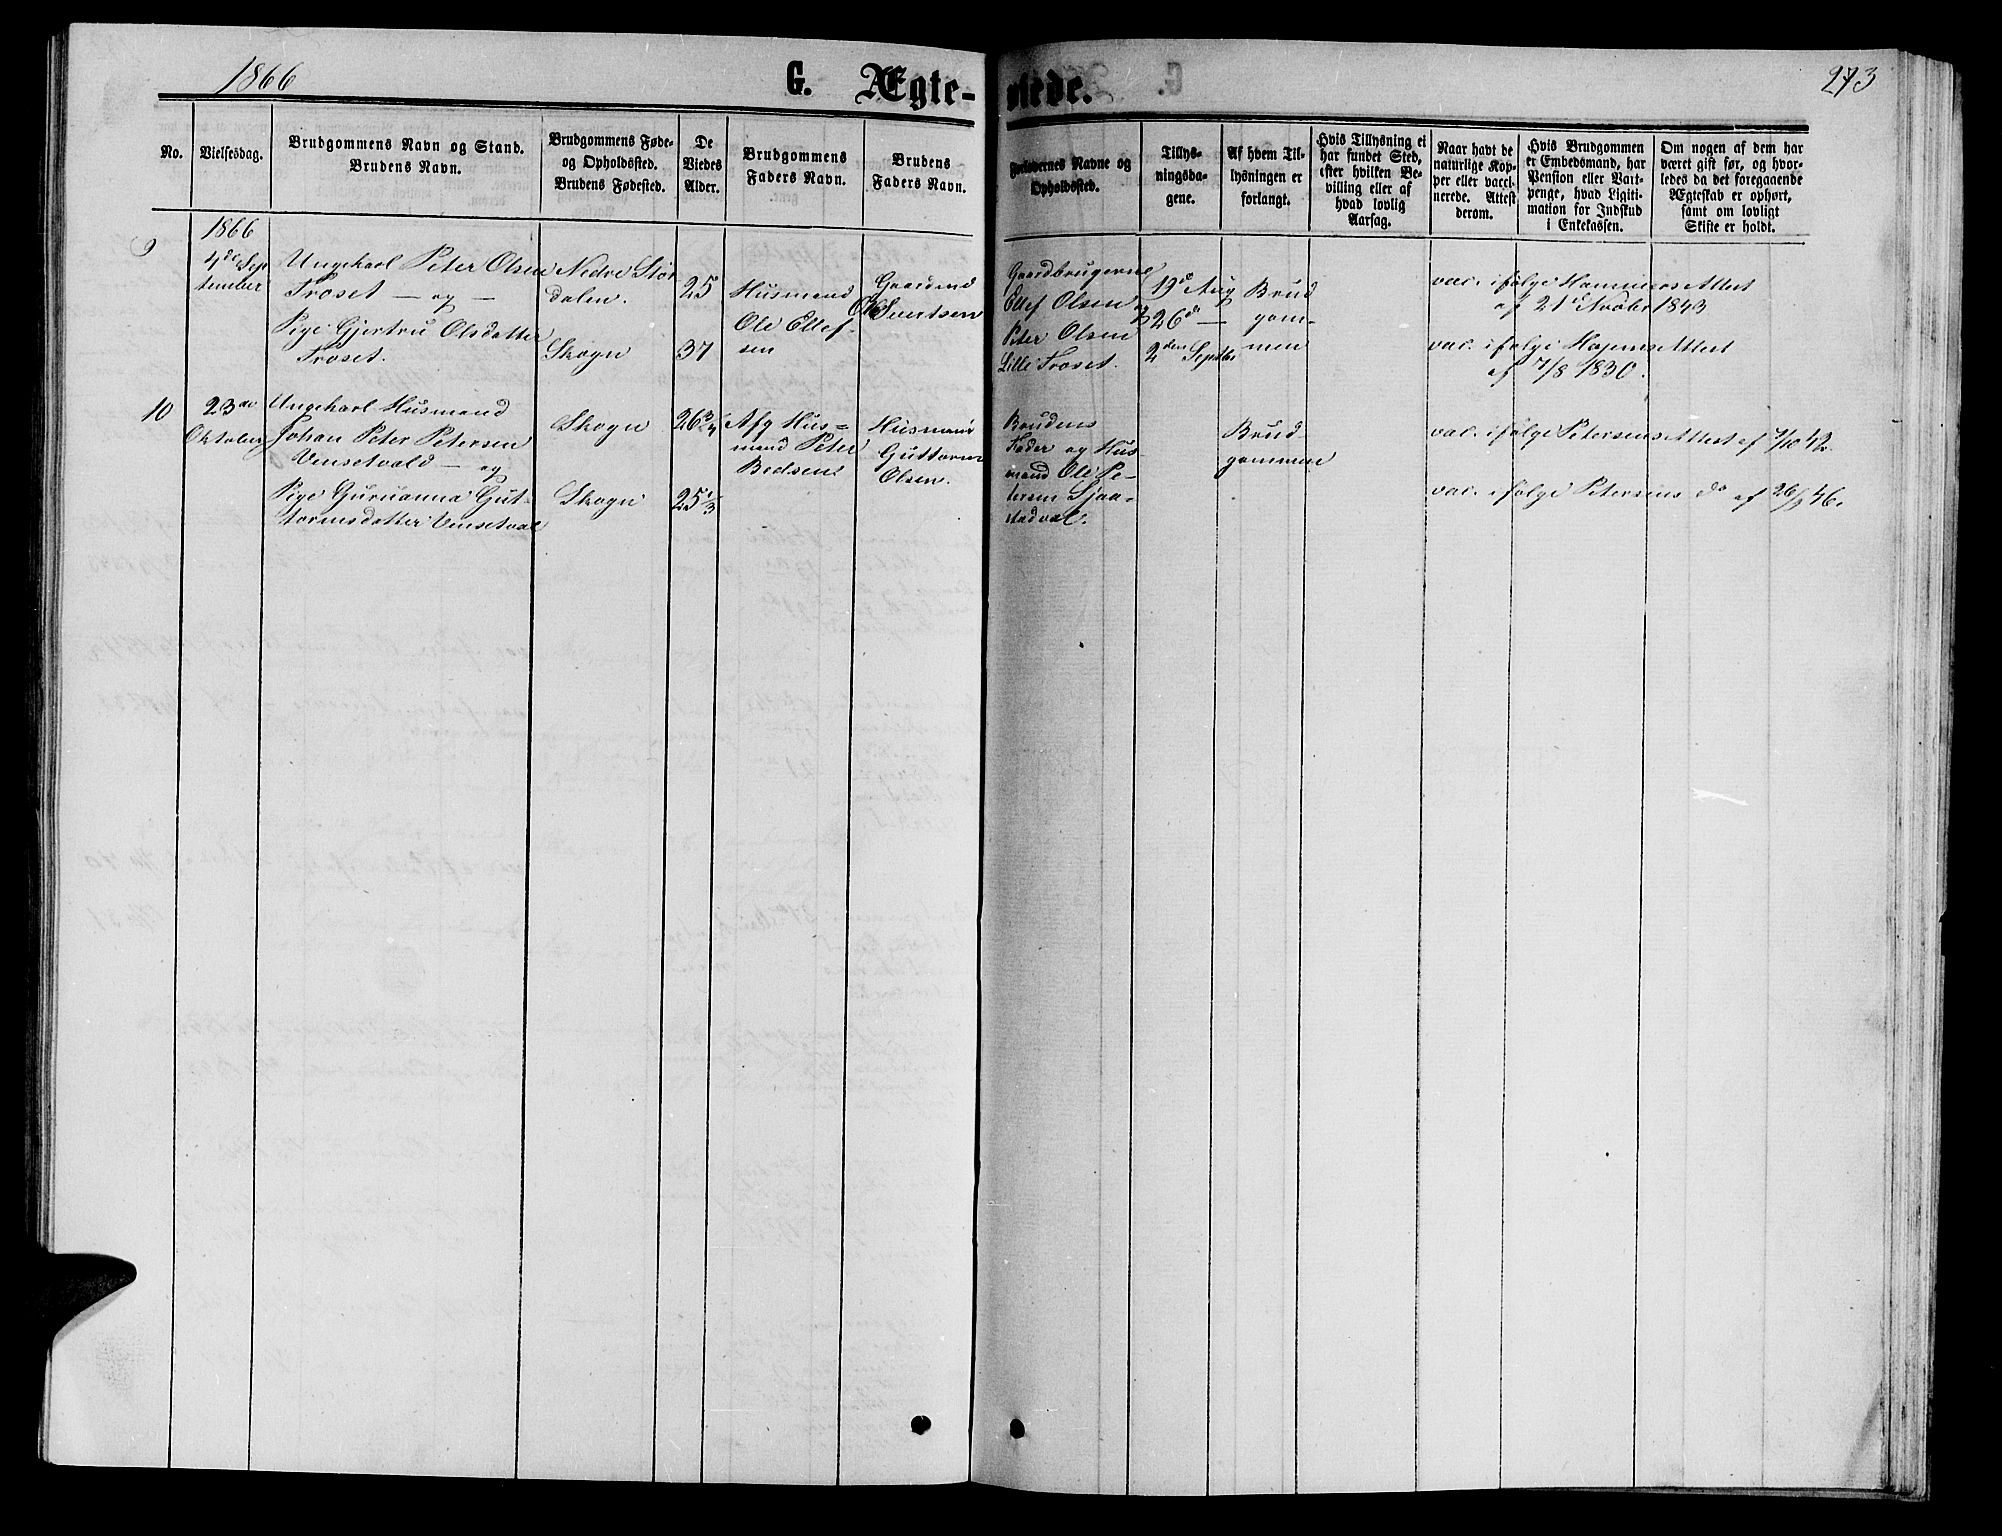 1866
G. Ægte-
viede.
273
No.
Vielsesdag.
Brudgommens Navn og Stand.
Brudens Navn.
Brudgommens Føde-
og Opholdssted.
Brudens Fødested.
De
Viedes
Alder.
Brudgommens
Faders Navn.
Brudens
Faders Navn.
Forlovernes Navne og
Opholdssted.
Tillys-
ningsda-
gene.
Af hvem Til-
lysningen er
forlangt.
Hvis Tillysning ei
har fundet Sted,
efter hvilken Be-
villing eller af
hvad lovlig
Aarsag.
Naar havt de
naturlige Kop-
per eller vacci-
nerede. Attest
derom.
Hvis Brudgommen
er Embedsmand, har
Pension eller Vart-
penge, hvad Ligiti-
mation for Indskud
i Enkekassen.
Om nogen af dem har
været gift før, og hvor-
ledes da det foregaaende
Ægteskab er ophørt,
samt om lovligt
Skifte er holdt.
9
1866
4de Sep
tember
Ungekarl Peter Olsen
Troset — og —
Pige Gjertru Olsdatter
Troset.
Nedre Stør
dalen.
Skogn
25
37
Husmand
Ole Ellef
sen
Gaardmd
Ole Sivertsen
Gaardbrugerne
Ellef Olsen
Peter Olsen
Lille Troset.
19d Aug
26d —
2den Septbr
Brud
gom-
men
vac. ifølge Hammers Attest
af 21d Novbr 1843
vac. ifølge Hagems Attest
af 7/8 1830.
10
23de
Oktober
Ungekarl Husmand
Johan Peter Petersen
Vensetvald — og
Pige Guruanna Gut-
tormsdatter Vensetval
Skogn
Skogn
26 3/4
25 1/3
Afg Hus=
mand Peter
Husmand
Guttorm
Olsen.
Brudens
Fader og Hus
mand Ole Pe-
tersen Sjaa-
stadval.
Brud-
gommen
vac. ifølge Petersens Attest af 7/10 42.
vac. ifølge Petersens do af 26/9 46.